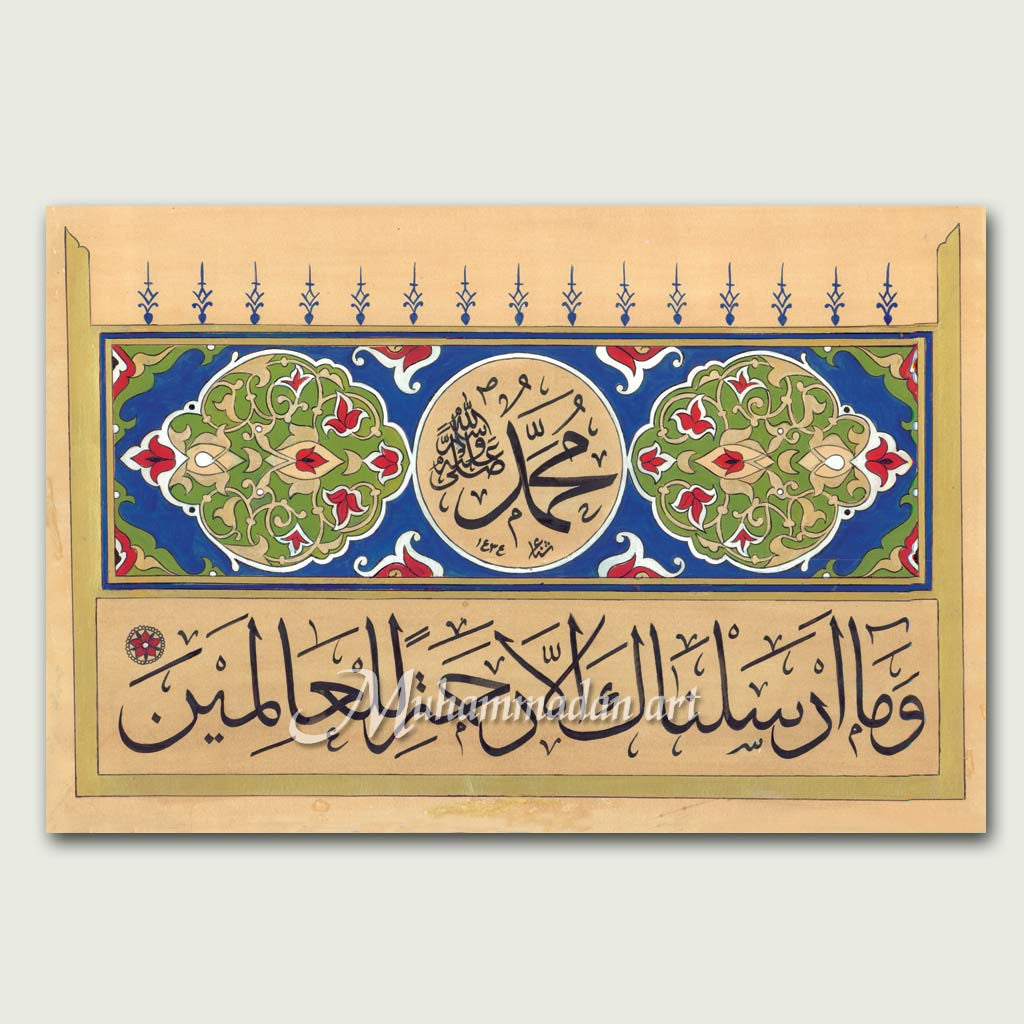 مُحَمَّد
صلى الله عليه وسلم
١٤٣٤
وَمَا أَرْسَلْنَاكَ إِلاَّ رَحْمَةً لِلْعَالَمِينَ
Muhammadan art